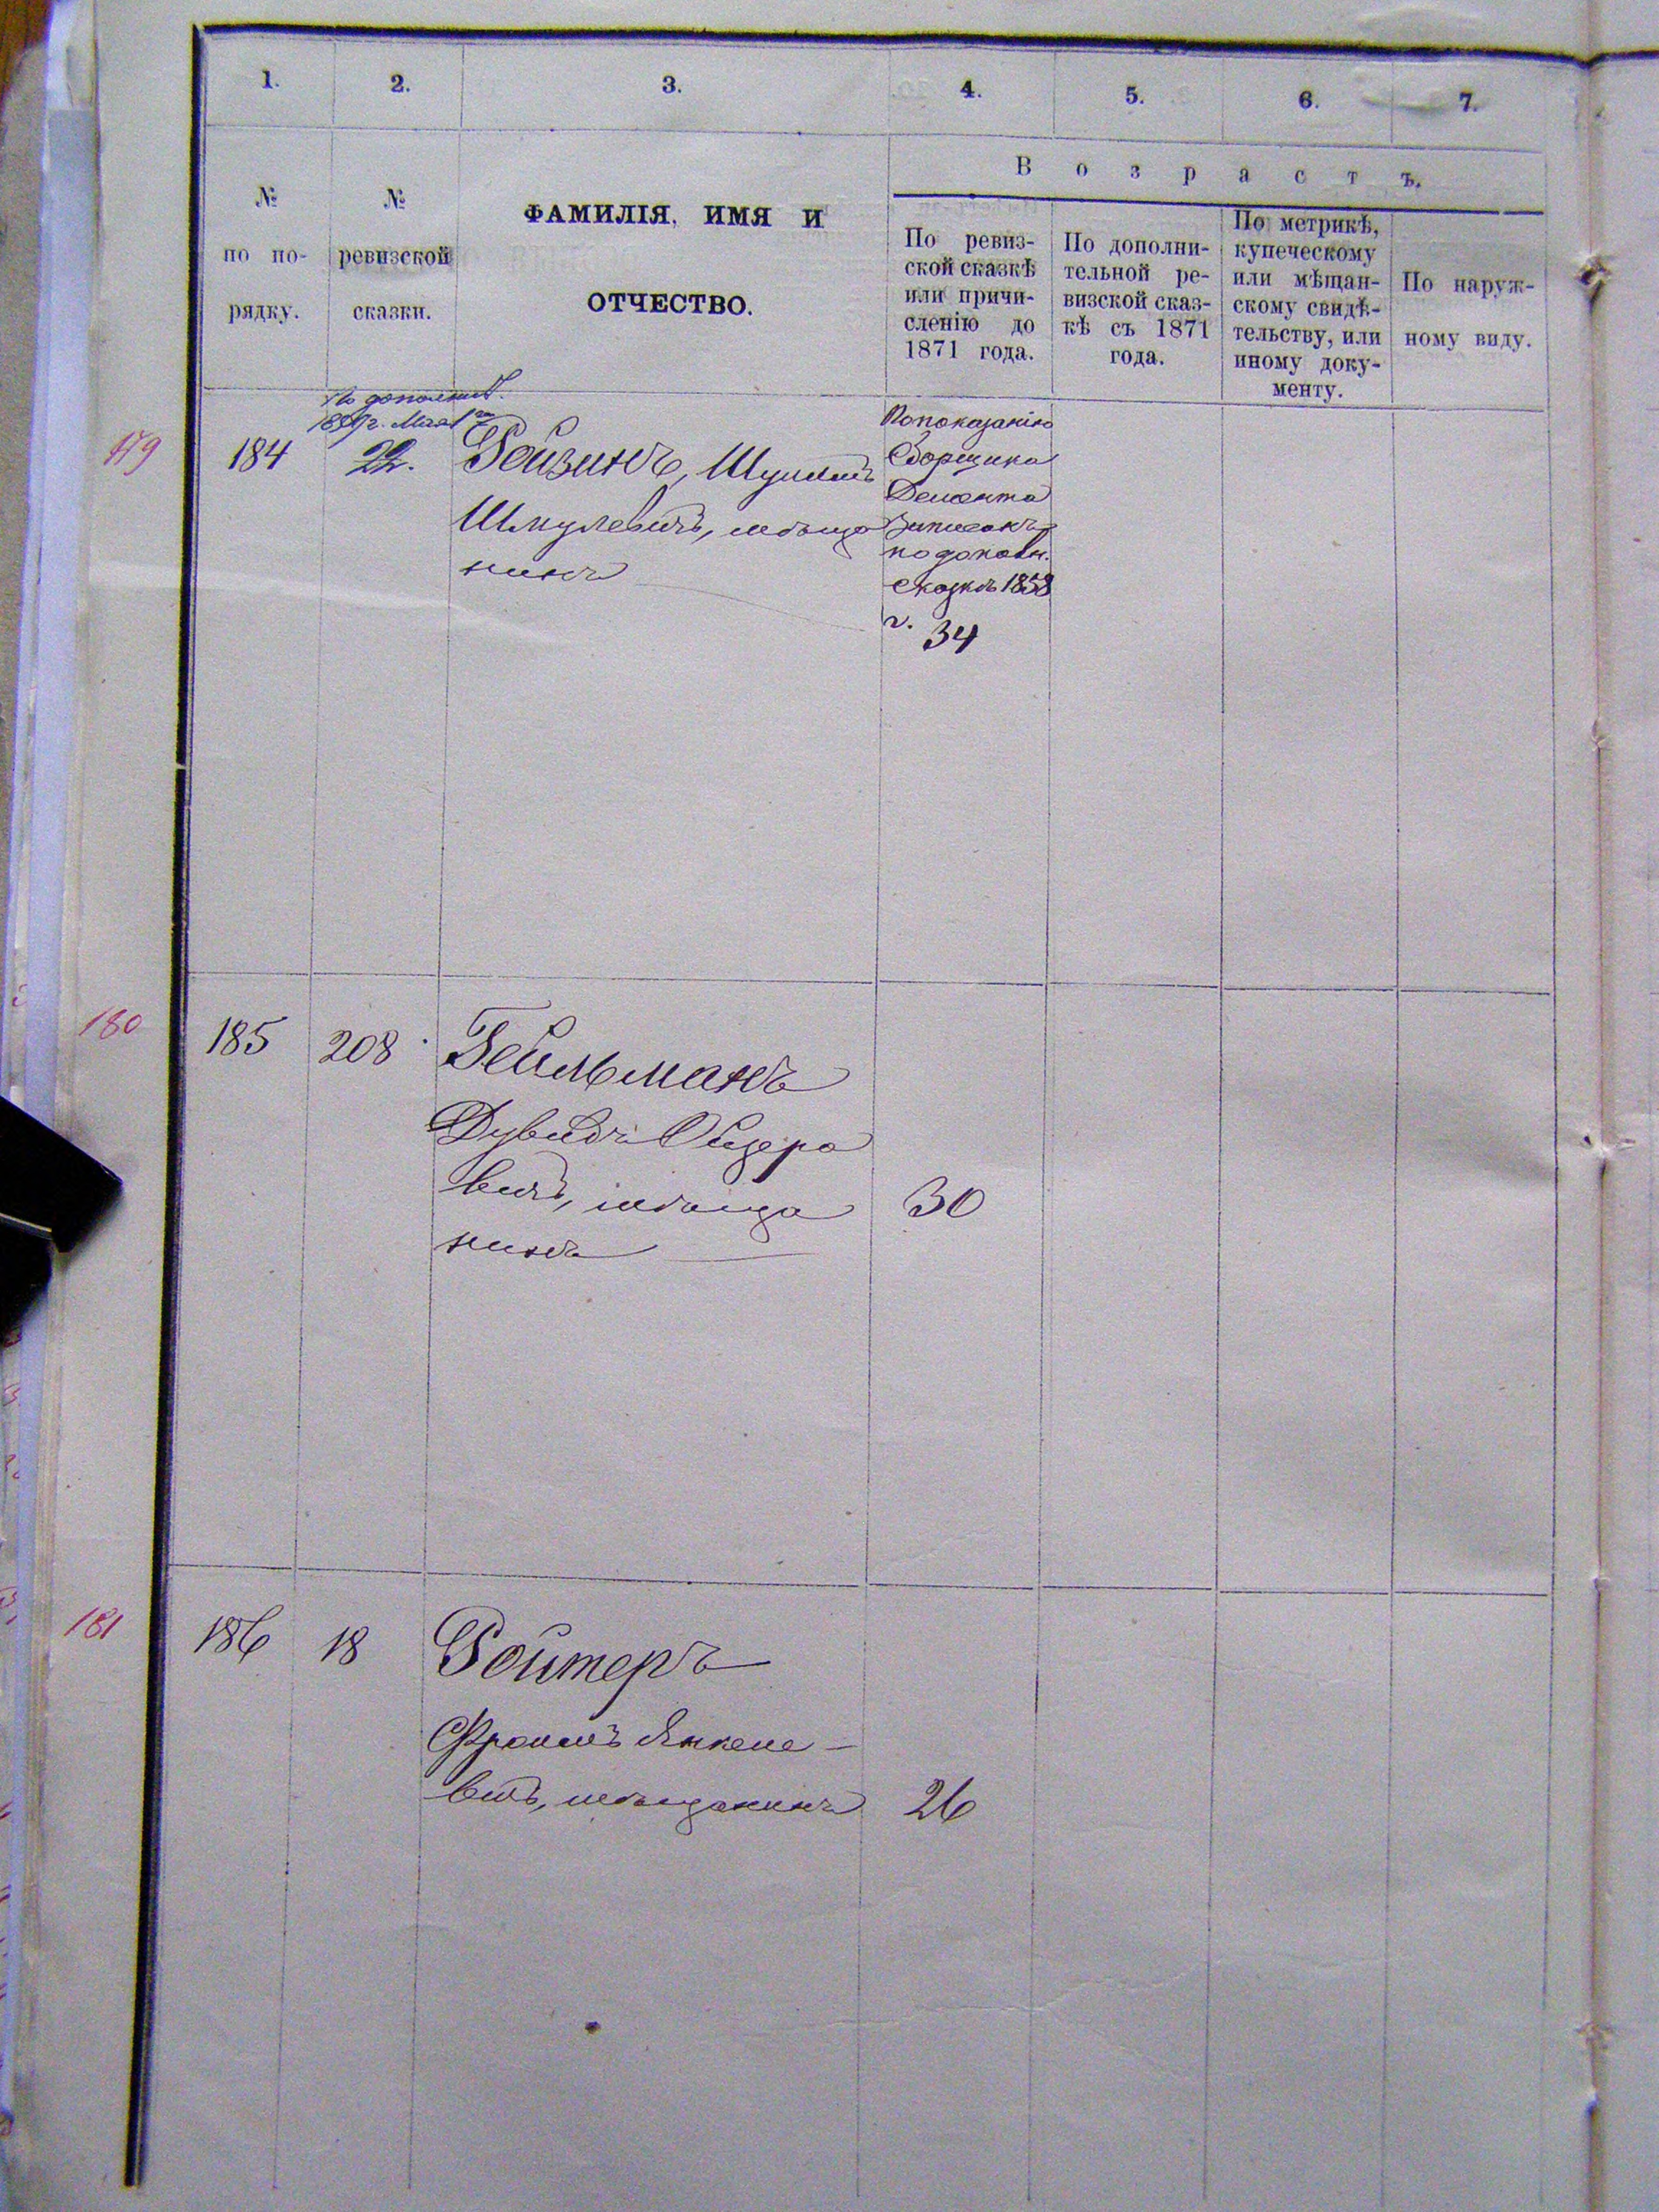 1.
2.
3.
4.
5.
6.
7.
№
по по-
рядку.
№
ревизской
сказки.
ФАМИЛІЯ, ИМЯ И
ОТЧЕСТВО.
Возрастъ.
По ревиз-
ской сказкѣ
или причи-
сленію до
1871 года.
По дополни-
тельной ре-
визской сказ-
кѣ съ 1871
года.
По метрикѣ,
купеческому
или мѣщан-
скому свидѣ-
тельству, или
иному доку-
менту.
По наруж-
ному виду.
179
184
По дополнит.
г. Мая
22.
Ройзинъ,
Шмулевичъ, мѣща
нинъ
По показанію
Сборщика
записанъ
по дополн.
сказкѣ 1858
г.
34
180
185
208
Гейльманъ
Дувидъ
вичъ, мѣща
нинъ
30
181
186
18
Ройтеръ
Фроимъ Янкеле-
вичъ, мѣщанинъ
26